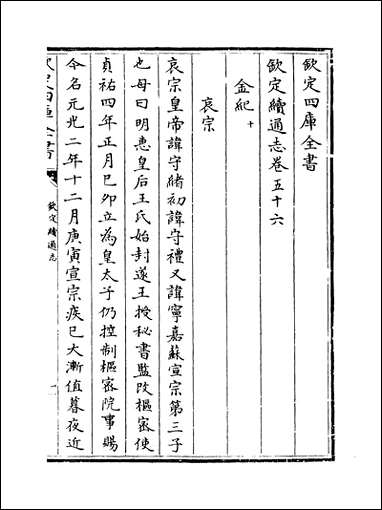 欽定四庫全書
欽定續通志卷五十六
金紀十
哀宗
哀宗皇帝諱守緒初諱守禮又諱寧嘉蘇宣宗第三子
也母曰明惠皇后王氏始封遂王授秘書監改樞密使
貞祐四年正月己卯立為皇太子仍控制樞密院事賜
今名元光二年十二月庚寅宣宗疾已大漸值暮夜近
欽定四庫全書
欽定續通志
一